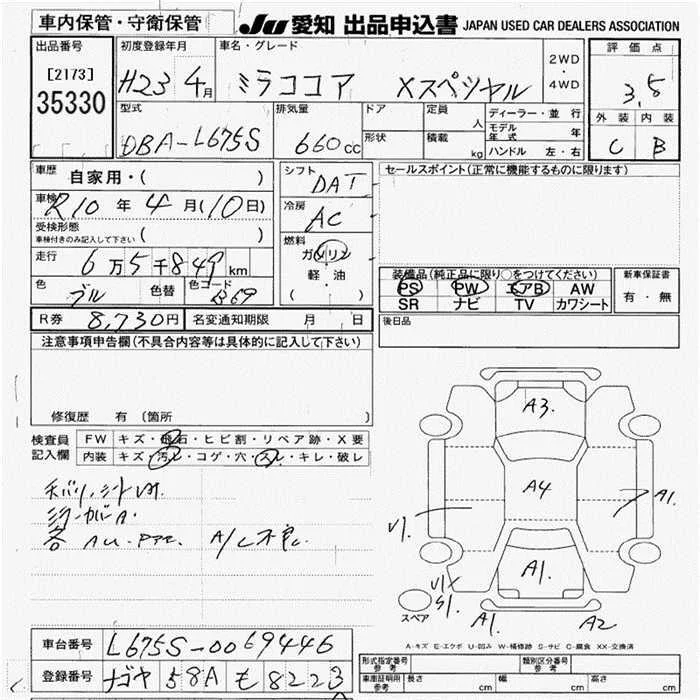 車内保管・守衛保管
JU 愛知 出品申込書 JAPAN USED CAR DEALERS ASSOCIATION
出品番号
[2173]
35330
初度登録年月
H23 4月
車名・グレード
ミラココア Xスペシャル
2WD
・
4WD
評価点
3.5
外装 内装
C B
型式
DBA-L675S
排気量
660cc
ドア
形状
定員 人
積載 kg
ディーラー・並行
モデル年式 年
ハンドル 左・右
車歴 自家用・( )
車検 R10年4月(10日)
受検形態
車検付きのみ記入して下さい ( )
走行 6万5千849km
色 ブル 色替 色コード B69
シフト DAT
冷房 AC
燃料
ガソリン
軽・油
( )
セールスポイント(正常に機能するものに限ります)
装備品(純正品に限り○をつけてください)
PS PW エアB AW
SR ナビ TV カワシート
新車保証書
有・無
R券 8,730円 名変通知期限 月 日
後日品
注意事項申告欄(不具合内容等は具体的に記入して下さい)
修復歴 有(箇所
検査員記入欄
FW キズ・飛石・ヒビ割・リペア跡・X要
内装 キズ・汚レ・コゲ・穴・スレ・キレ・破レ
A/C不良
A3.
A4
A1.
A1.
A1.
A2
S1.
スペア
A-キズ E-エクボ U-凹み W-補修跡 S-サビ C-腐食 XX-交換済
車台番号 L675S-0069446
登録番号 ナゴヤ 58A も 8223
形式指定番号 参考
類別区分番号 参考
車庫証明用 参考 長さ cm 幅 cm 高さ cm